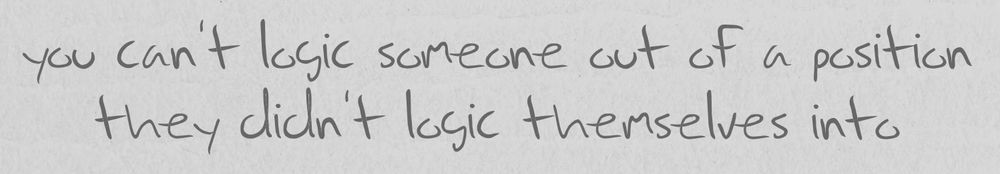 you can't logic someone out of a position
they didn't logic themselves into